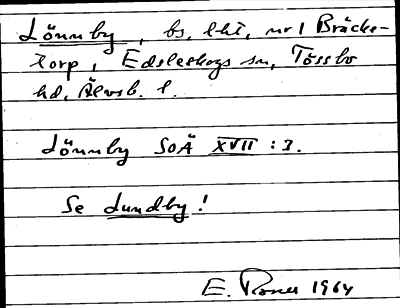 Lönnby, bs, lht, nr 1 Bräcke-
torp, Edsleskogs sn, Tössbo
hd, Älvsb. l.
Lönnby SOÄ XVII : 3.
Se Lundby!
E. 1964